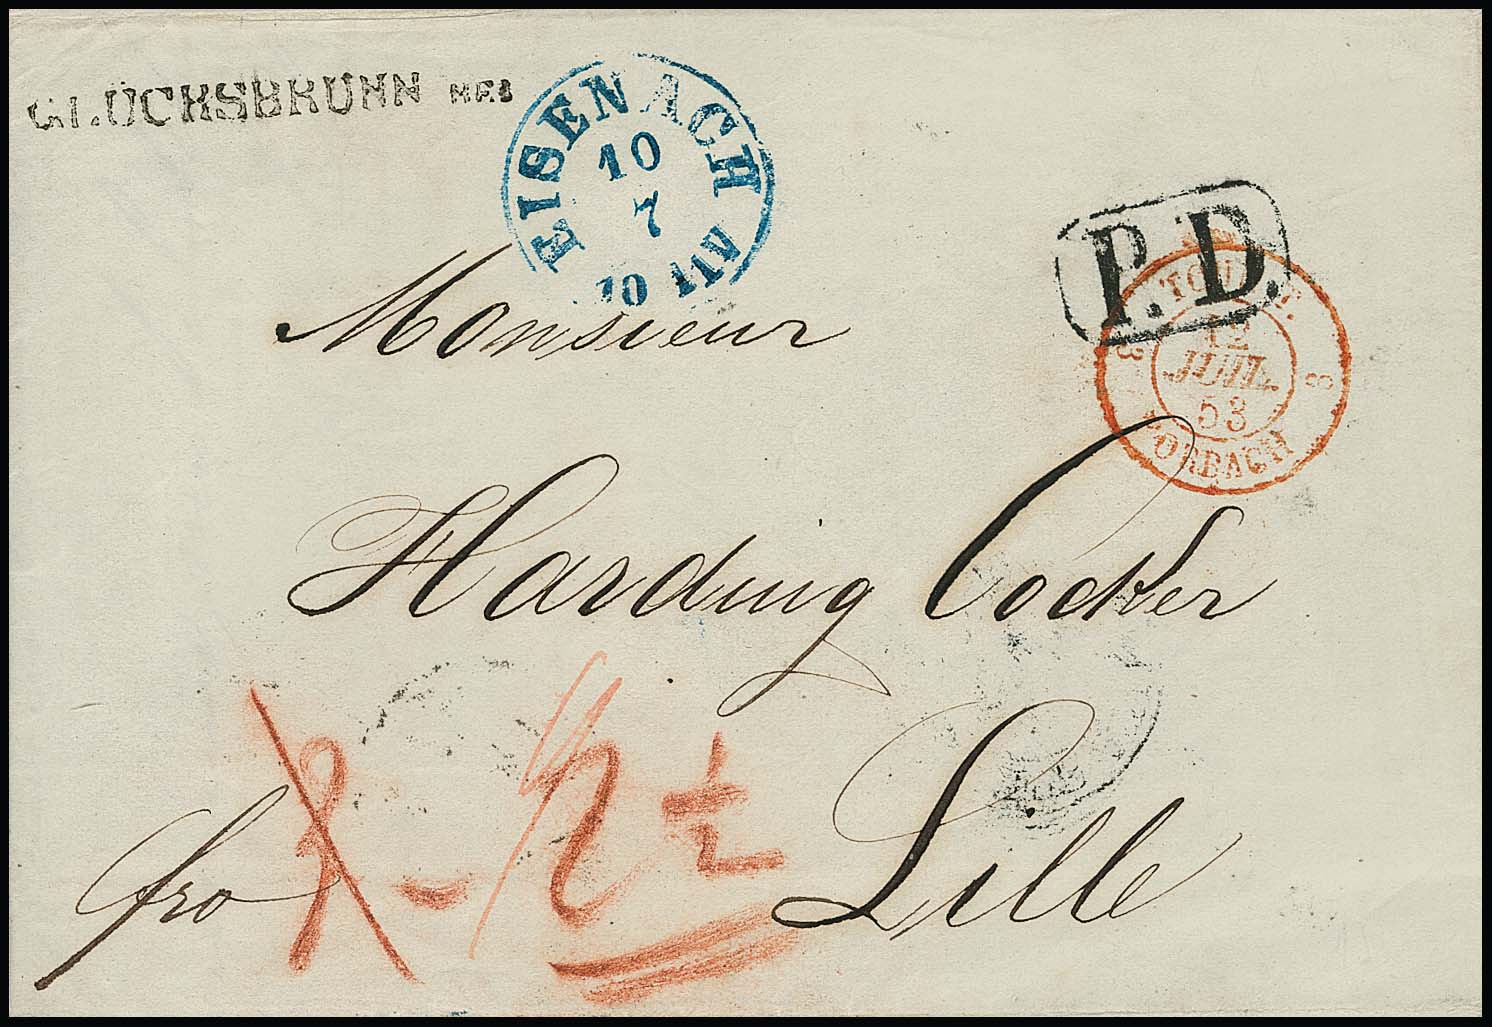 GLÜCKSBRUNN
EISENACH
10
7
10 11
P.D.
TOUR-T.
12
JUIL.
53
3 8
FORBACH
Monsieur
Harding Cocker
Lille
fro